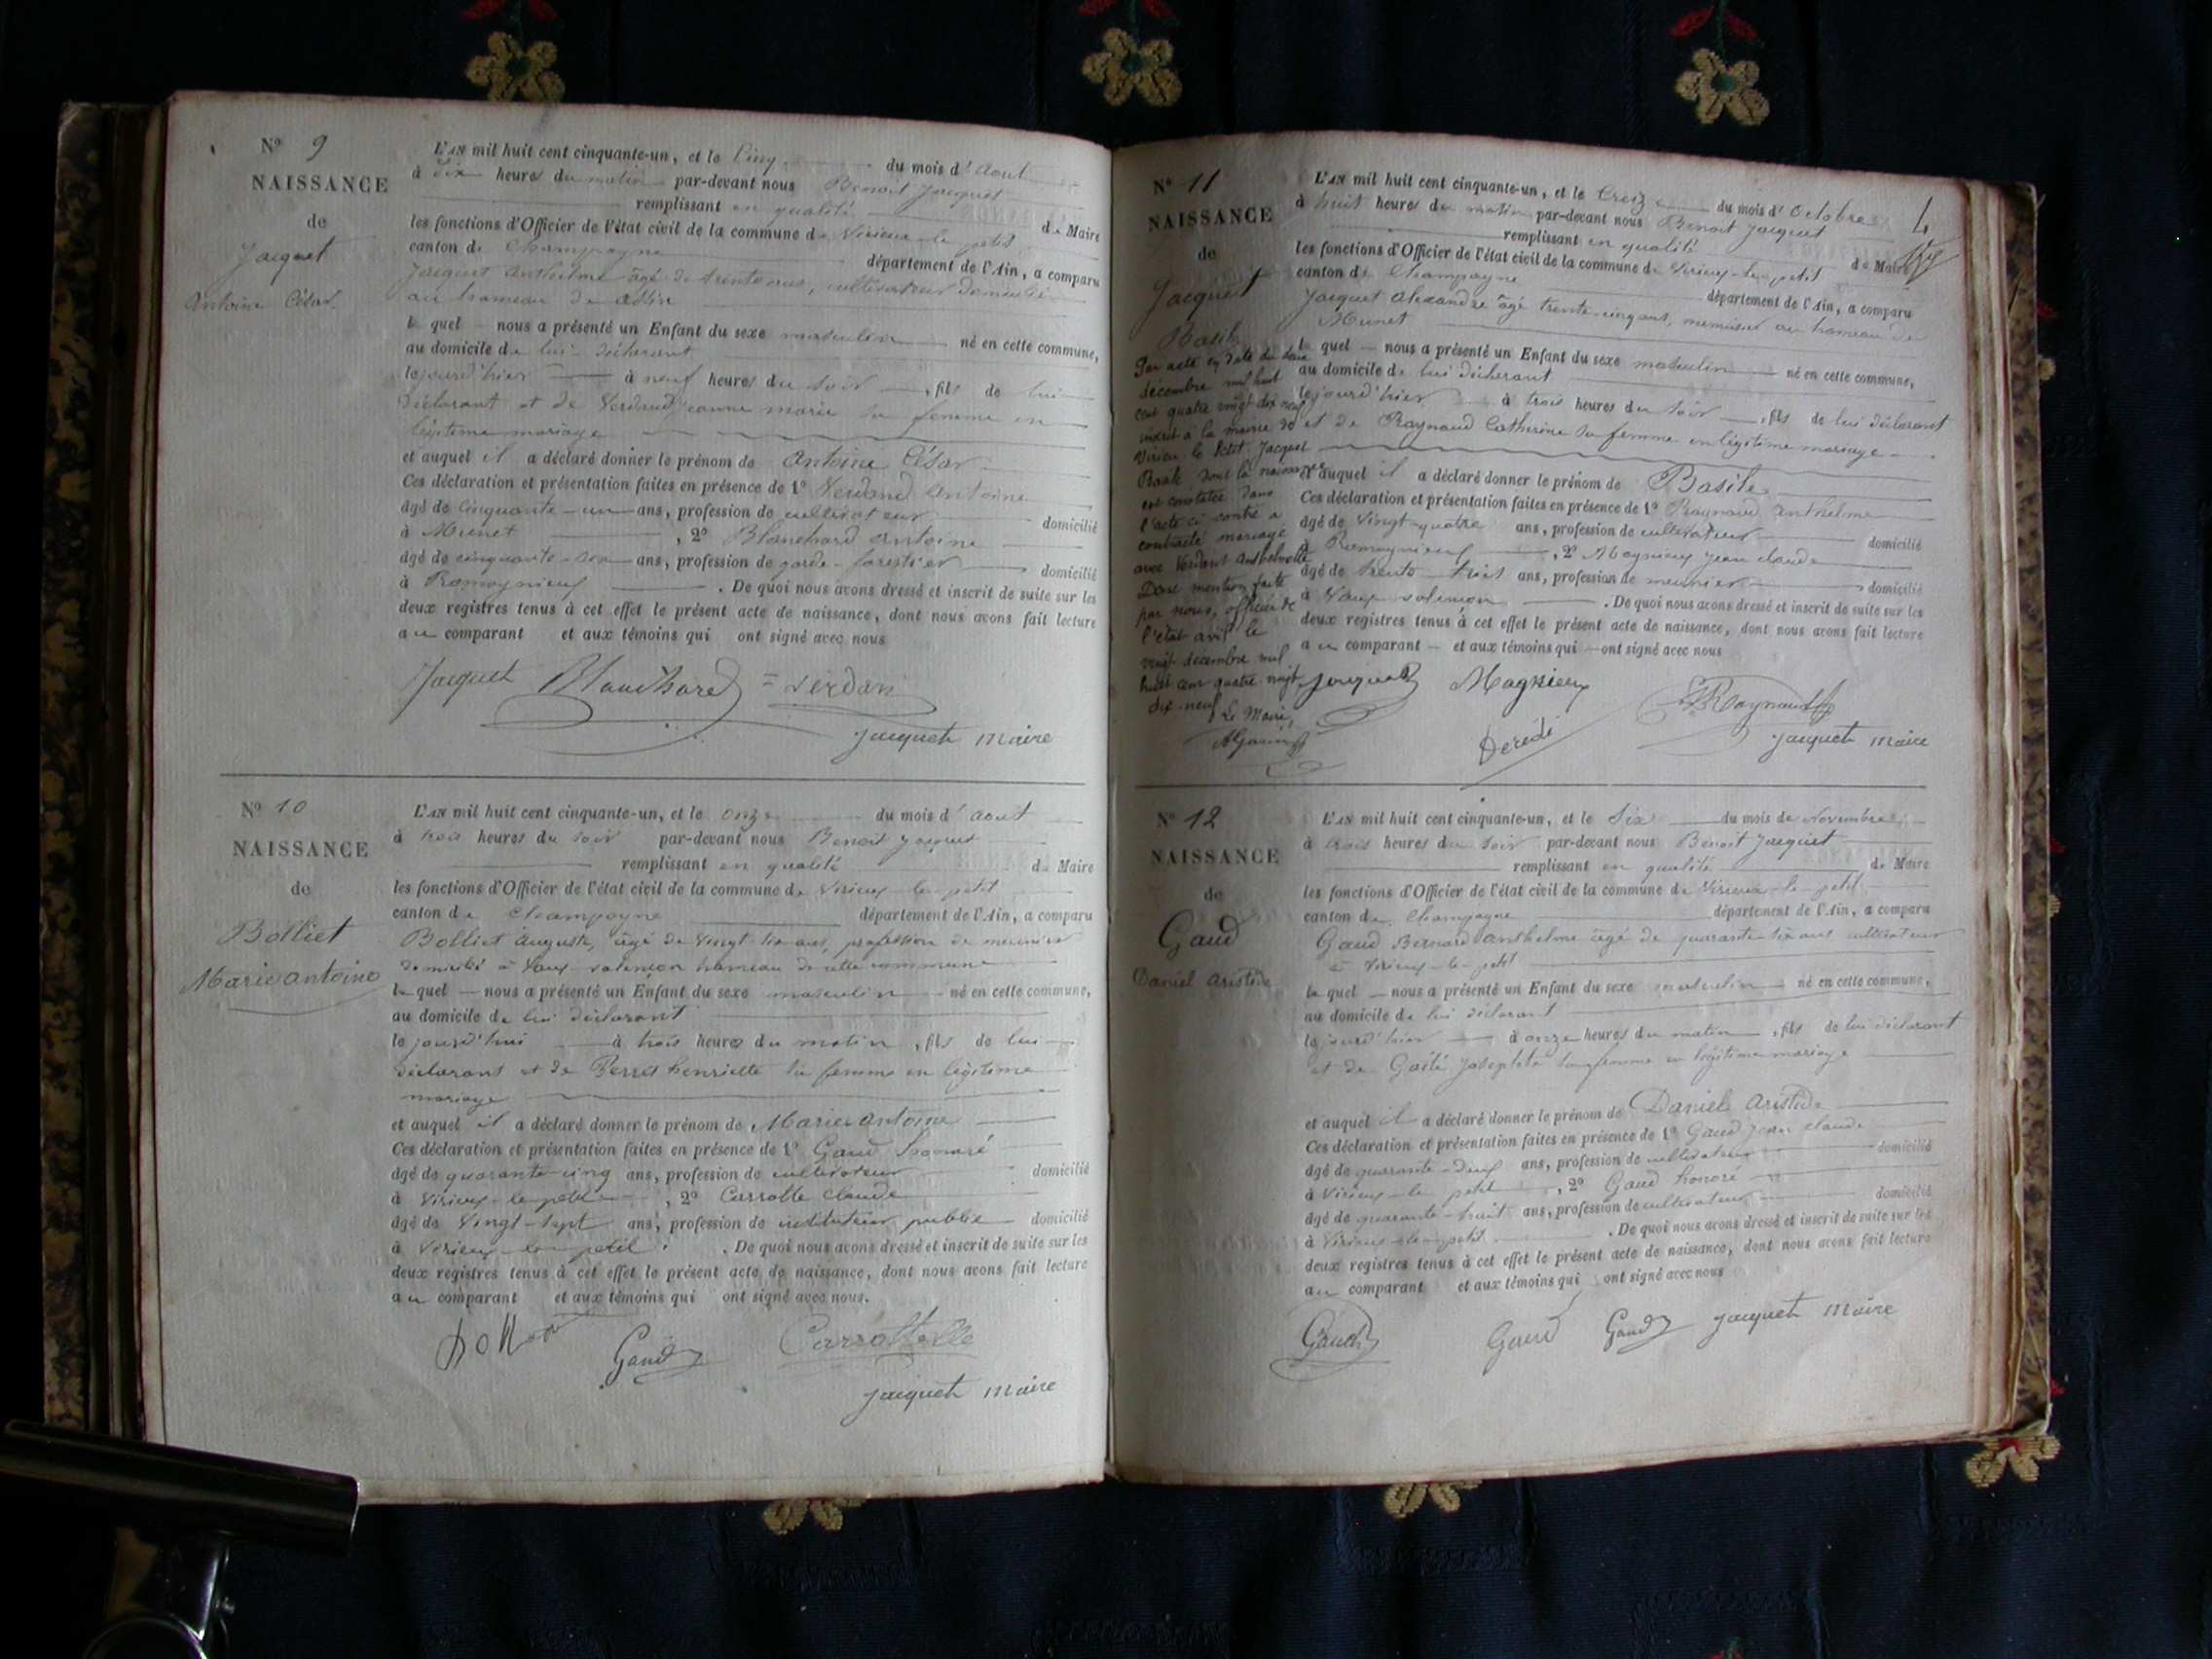 N° 9
NAISSANCE
de
Jacquet
Antoine César
L'AN mil huit cent cinquante-un, et le Cinq du mois d'Aout
à dix heures du matin par-devant nous Benoit Jacquet
remplissant en qualité de Maire
les fonctions d'Officier de l'état civil de la commune de Virieu-le-petit
canton de Champagne département de l'Ain, a comparu
Jacquet Anthelme âgé de trente ans, cultivateur domicilié
au hameau de
le quel nous a présenté un Enfant du sexe masculin né en cette commune,
au domicile de lui déclarant
le jourd'hier à neuf heures du soir, fils de lui
déclarant et de Verdand jeanne marie sa femme en
légitime mariage
et auquel il a déclaré donner le prénom de Antoine César
Ces déclaration et présentation faites en présence de 1° Verdand Antoine
âgé de Cinquante-un ans, profession de cultivateur domicilié
à Munet, 2° Blanchard Antoine
âgé de cinquante-six ans, profession de garde-forestier domicilié
à Romagnieux. De quoi nous avons dressé et inscrit de suite sur les
deux registres tenus à cet effet le présent acte de naissance, dont nous avons fait lecture
au comparant et aux témoins qui ont signé avec nous
Jacquet Blanchard = Verdan
Jacquet maire
N° 10
NAISSANCE
de
Bolliet
Marie Antoine
L'AN mil huit cent cinquante-un, et le onze du mois d'aout
à trois heures du soir par-devant nous Benoit Jacquet
remplissant en qualité de Maire
les fonctions d'Officier de l'état civil de la commune de Virieux-le-petit
canton de Champagne département de l'Ain, a comparu
Bolliet Auguste, âgé de vingt six ans, profession de meunier
domicilié à Vaux-salomon hameau de cette commune
le quel nous a présenté un Enfant du sexe masculin né en cette commune,
au domicile de lui déclarant
le jourd'hui à trois heures du matin, fils de lui
déclarant et de Berret henriette sa femme en légitime
mariage
et auquel il a déclaré donner le prénom de Marie Antoine
Ces déclaration et présentation faites en présence de 1° Gaud honoré
âgé de quarante-cinq ans, profession de cultivateur domicilié
à Virieux-le-petit, 2° Carrotte Claude
âgé de Vingt-sept ans, profession de instituteur public domicilié
à Virieux-le-petit. De quoi nous avons dressé et inscrit de suite sur les
deux registres tenus à cet effet le présent acte de naissance, dont nous avons fait lecture
au comparant et aux témoins qui ont signé avec nous.
Gaud Carrotte
Jacquet maire
4
N° 11
NAISSANCE
de
Jacquet
Basile
Par acte en date du deux
décembre mil huit
cent quatre vingt dix neuf
inscrit à la mairie de
Virieu le Petit, Jacquet
Basile dont la naissance
est constatée dans
l'acte ci contre a
contracté mariage
avec Verdant Anthelmette
Dont mention faite
par nous, officier de
l'état civil le
vingt décembre mil
huit cent quatre vingt
dix-neuf
Le Maire,
L'AN mil huit cent cinquante-un, et le treize du mois d'Octobre
à huit heures du matin par-devant nous Benoit Jacquet
remplissant en qualité de Maire
les fonctions d'Officier de l'état civil de la commune de Virieux-le-petit
canton de Champagne département de l'Ain, a comparu
Jacquet Alexandre âgé trente-cinq ans, menuisier au hameau de
Munet
le quel nous a présenté un Enfant du sexe masculin né en cette commune,
au domicile de lui déclarant
le jourd'hier à trois heures du soir, fils de lui déclarant
et de Raynaud Catherine sa femme en légitime mariage
et auquel il a déclaré donner le prénom de Basile
Ces déclaration et présentation faites en présence de 1° Raynaud Anthelme
âgé de vingt-quatre ans, profession de cultivateur domicilié
à Romagnieux, 2° Magnieux Jean Claude
âgé de trente-trois ans, profession de meunier domicilié
à Vaux-salomon. De quoi nous avons dressé et inscrit de suite sur les
deux registres tenus à cet effet le présent acte de naissance, dont nous avons fait lecture
au comparant et aux témoins qui ont signé avec nous
Jacquet Magnieux Raynaud
Jacquet maire
N° 12
NAISSANCE
de
Gaud
Daniel Aristide
L'AN mil huit cent cinquante-un, et le Six du mois de Novembre
à trois heures du soir par-devant nous Benoit Jacquet
remplissant en qualité de Maire
les fonctions d'Officier de l'état civil de la commune de Virieux-le-petit
canton de Champagne département de l'Ain, a comparu
Gaud Bernard Anthelme âgé de quarante-six ans cultivateur
à Virieux-le-petit
le quel nous a présenté un Enfant du sexe masculin né en cette commune,
au domicile de lui déclarant
le jourd'hier à onze heures du matin, fils de lui déclarant
et de Josephte sa femme en légitime mariage
et auquel il a déclaré donner le prénom de Daniel Aristide
Ces déclaration et présentation faites en présence de 1° Gaud Jean Claude
âgé de quarante-deux ans, profession de cultivateur domicilié
à Virieux-le-petit, 2° Gaud honoré
âgé de quarante-huit ans, profession de cultivateur domicilié
à Virieux-le-petit. De quoi nous avons dressé et inscrit de suite sur les
deux registres tenus à cet effet le présent acte de naissance, dont nous avons fait lecture
au comparant et aux témoins qui ont signé avec nous
Gaud Gaud Gaud Jacquet maire